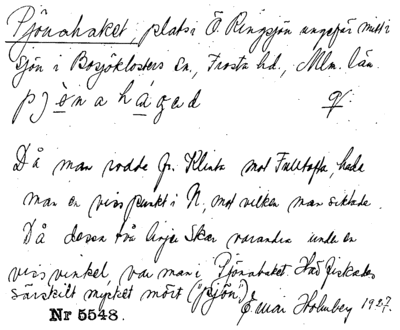 Pjönahaket, plats i Ö. Ringsjön ungefär mitt i
sjön i Bosjöklosters sn., Frosta hd., Mlm. län.
pjönahagad
Då man rodde fr. Klinta mot Fulltofta, hade
man en viss punkt i N, mot vilken man siktade.
Då dessa två linjer skar varandra under en
viss vinkel, var man i Pjönahaket. Här fiskades
särskilt mycket mört ("pjön").
Einar Holmberg 1927.
Nr 5548.